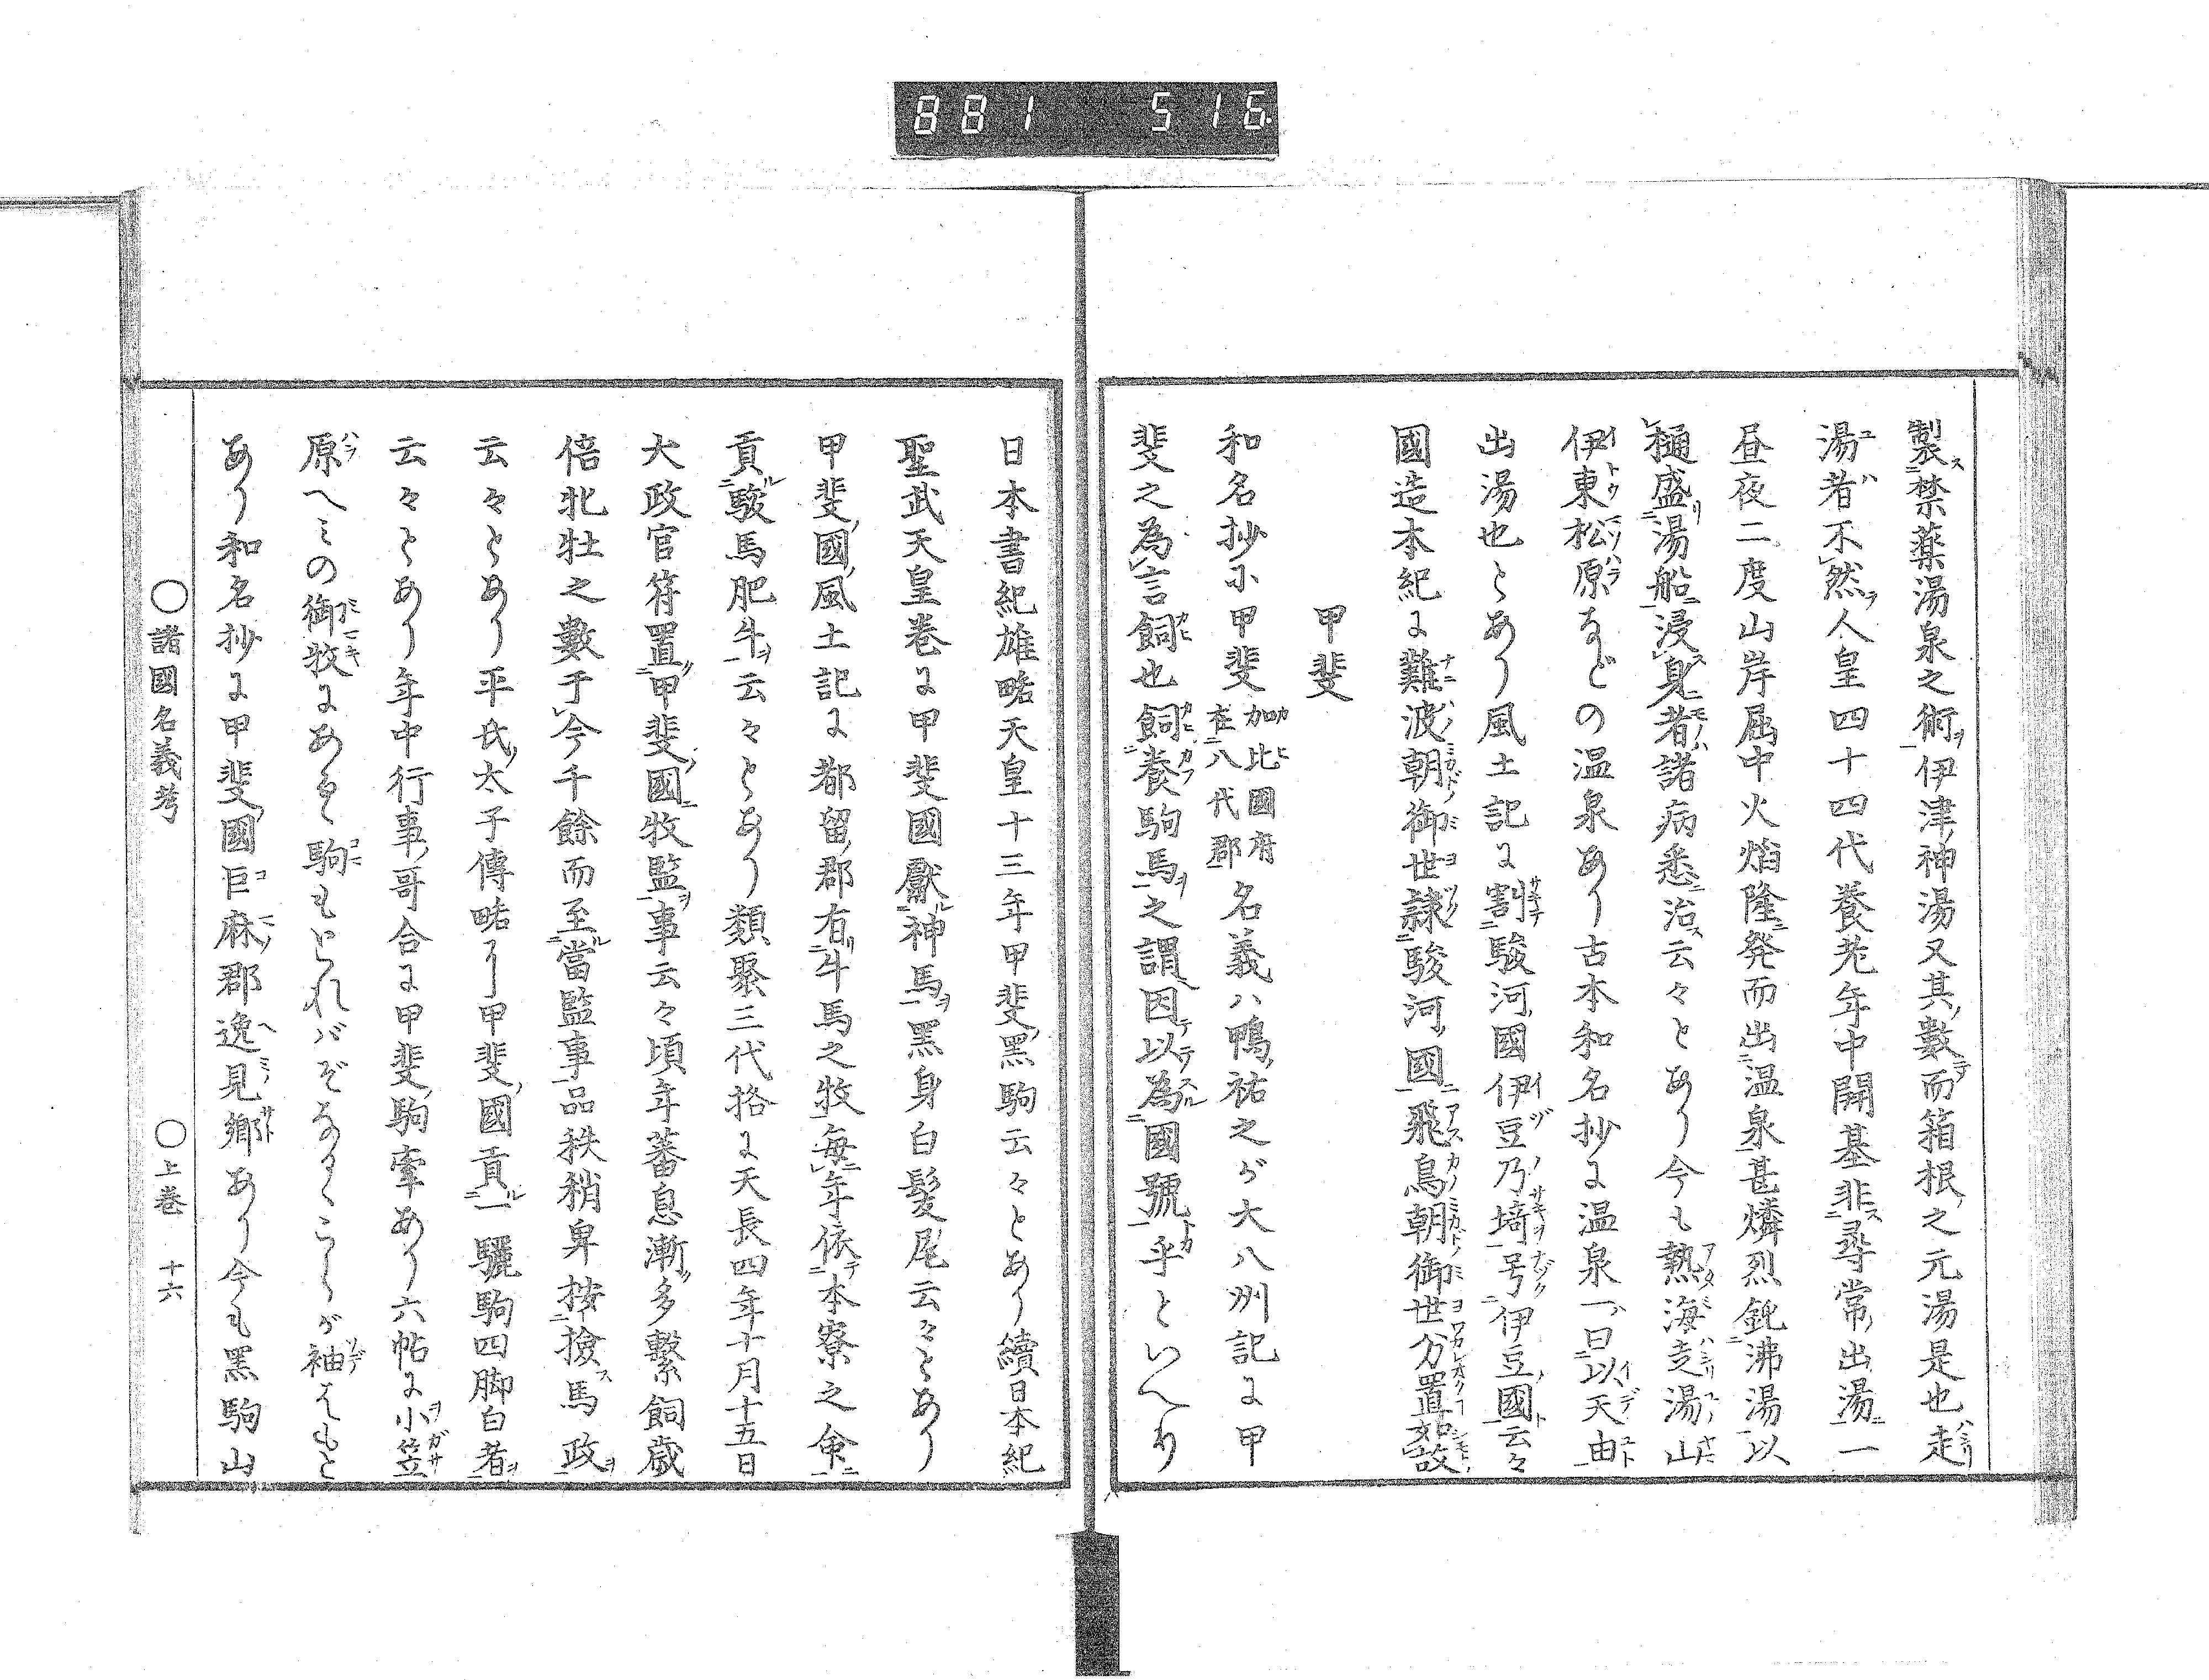 881 516
製禁薬湯泉之術伊津神湯又其數而箱根之元湯是也走
湯者不然人皇四十四代養老年中開基非尋常出湯一
昼夜二度山岸屈中火焔隆発而出温泉甚燐烈鈍沸湯以
樋盛湯船浸身者諸病悉治云々とあり今も熱海走湯山
伊東松原などの温泉あり古本和名抄に温泉一曰以天由
出湯也とあり風土記に割駿河國伊豆乃埼号伊豆國云々
國造本紀に難波朝御世隷駿河國飛鳥朝御世分置如故
甲斐
和名抄小甲斐加比國府在八代郡名義ハ鴨祐之が大八洲記に甲
斐之為言飼也飼養駒馬之謂因以為國號乎といへり
日本書紀雄略天皇十三年甲斐黑駒云々とあり續日本紀
聖武天皇巻に甲斐國獻神馬黑身白髪尾云々とあり
甲斐國風土記に都留郡有牛馬之牧毎年依本寮之命
貢駿馬肥牛云々とあり類聚三代格に天長四年十月十五日
大政官符置甲斐國牧監事云々頃年蕃息漸多繫飼歳
倍牝牡之數于今千餘而至當監事品秩稍卑按撿馬政
云々とあり平氏太子傳略に甲斐國貢一驪駒四脚白者
云々とあり年中行事哥合に甲斐駒牽あり六帖に小笠
原へミの御牧にあるゝ駒もとれバぞなるくこらが袖はもと
あり和名抄に甲斐國巨麻郡逸見鄉あり今も黑駒山
○諸國名義考 ○上巻 十六